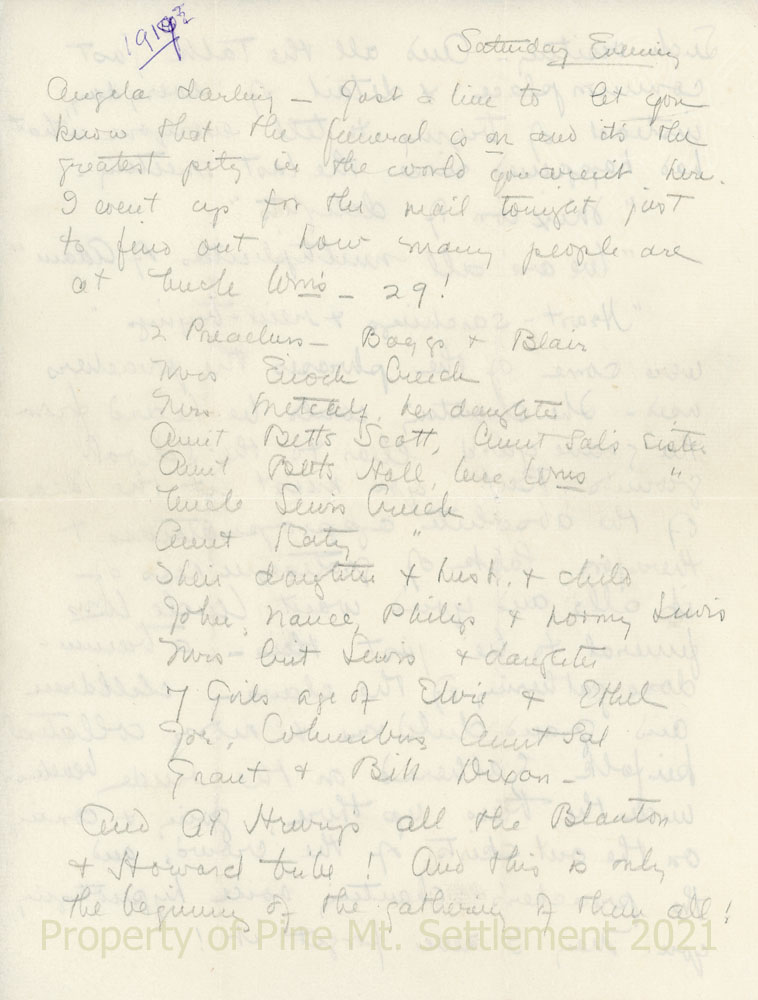 Saturday Evening
Angela darling – Just a line to let you
know that the funeral is on and it's the
greatest pity in the world you aren't here.
I went up for the mail tonight just
to find out how many people are
at Uncle Wms – 29!
2 Preachers – Boggs & Blair
Mrs Enoch Creech
Mrs Metcalf, her daughter
Aunt Betts Scott, Aunt Sal's sister
Aunt Betts Hall, Unc Wms "
Uncle Lewis Creech
Aunt Katy "
Their daughter & husb. & child
John, Nance, Philip & Lewis
Mrs Lewis & daughter
7 Girls age of Elvie & Ethel
Joe, Columbus, Aunt Sal
Grant & Bill Dixon –
And at Henrys all the Blanton
& Howard tribe! And this is only
the beginning of the gathering of them all!
Property of Pine Mt. Settlement 2021